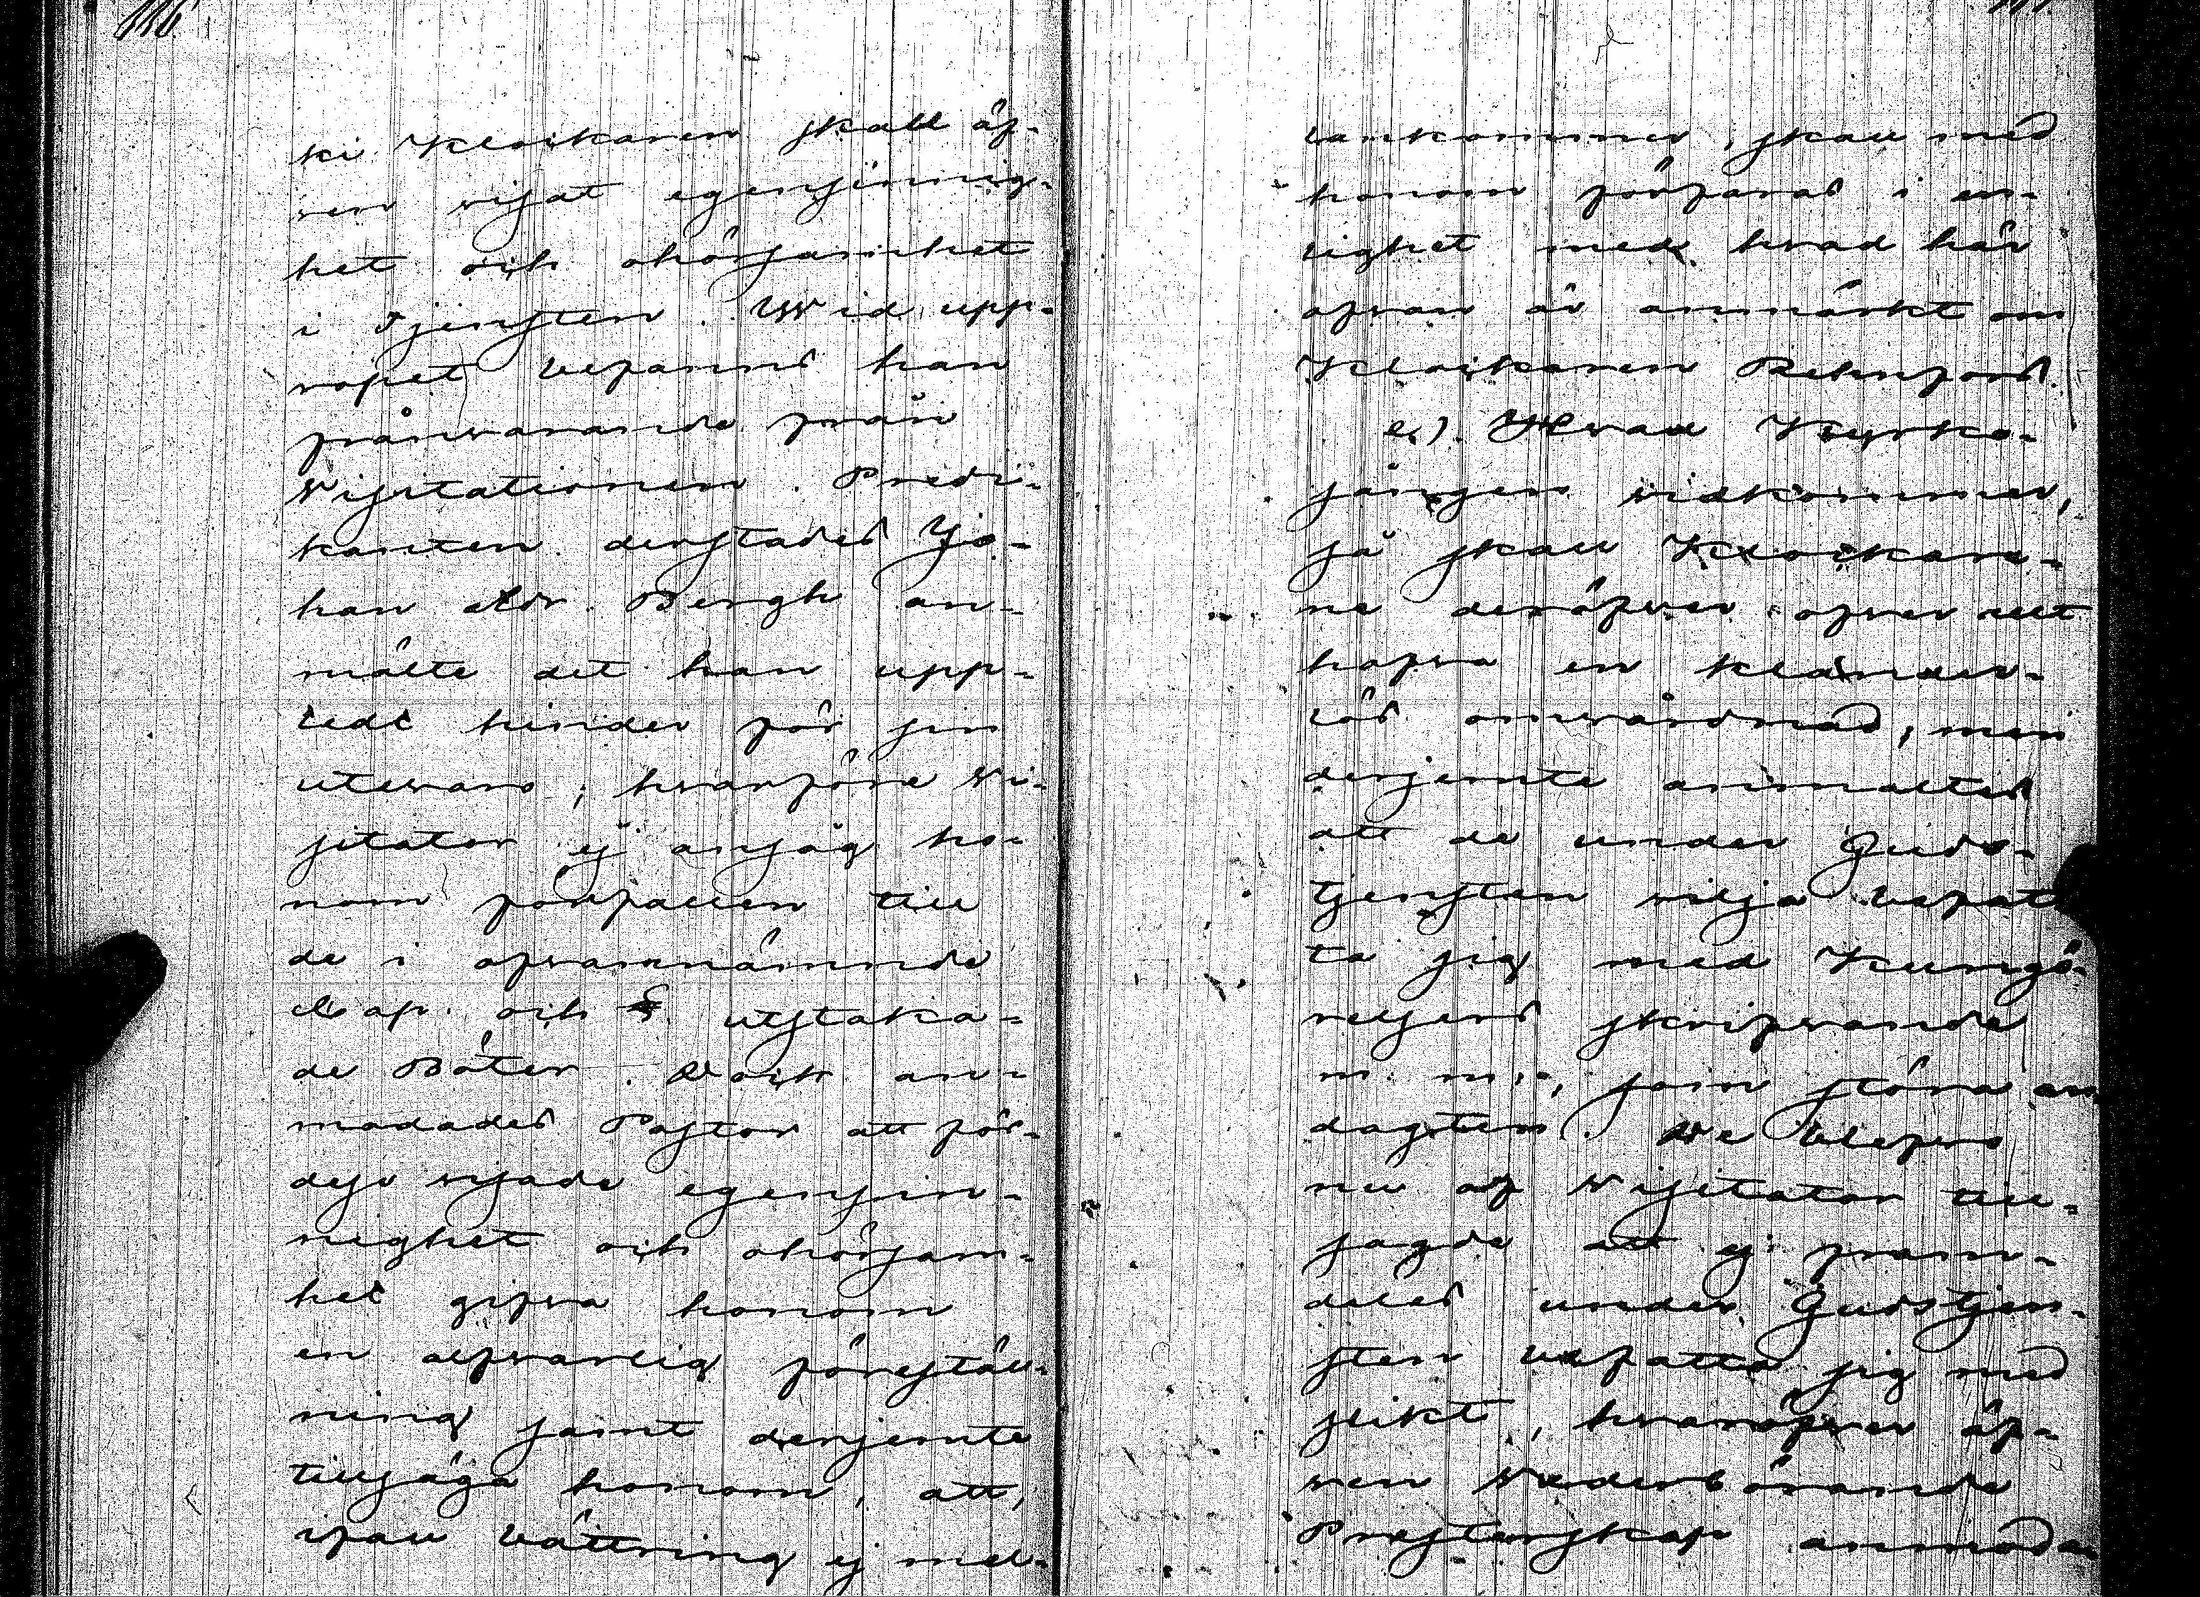 116
ki Klockaren skall äf-
ven visat egensinnig-
het och ohörsamhet
i tjensten. Wid upp-
ropet befanns han
frånvarande från
Visitationen. Predi-
kanten derstädes Jo-
han Adr. Bergh an-
mälte det han upp-
tedt hinder för sin
utevaro; hvarföre Vi-
sitator ej ansåg ho-
nom förfallen till
de i ofvannämnde
Cap. och §. utstaka-
de Böter. Dock an-
modades Pastor att för-
dess visade egensin-
nighet och ohörsam-
het gifva honom
en alfvarlig förestäl-
ning samt derjemte
tillsäga honom, att,
ifall bättring ej mel-
lankommer, skall med
honom förfaras i en-
lighet med hvad här
ofvan är anmärkt om
Klockaren Rehnfors.
c.) Hvad Kyrko-
sången vidkommer,
så skall Klockare-
ne deröfver öfver allt
hafva en klander-
lös omvårdnad; men
derjemte anmältes
att de under Guds-
tjensten vilja befat-
ta sig med Kungö-
relsers skrifvande
m. m., som störa an-
dagten. De blefvo
nu af Visitator till-
sagde att ej fram-
deles under Gudstjen-
sten befatta sig med
slikt, hvaröfver äf-
ven Vederbörande
Presterskap anmoda-